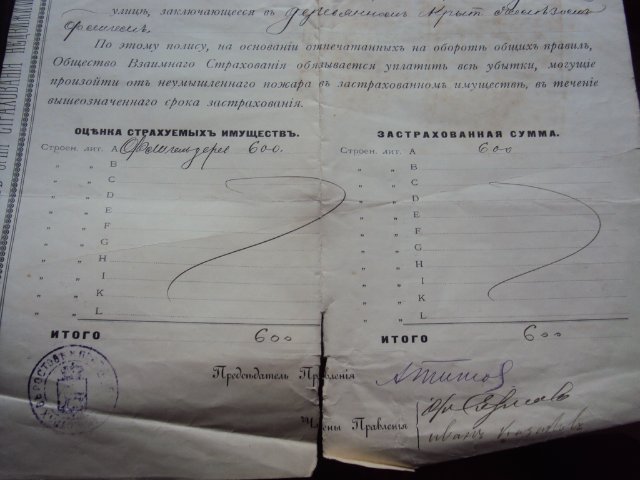 улицѣ, заключающееся въ деревянномъ крыт. желѣзомъ
флигелѣ.
По этому полису, на основаніи отпечатанныхъ на оборотѣ общихъ правилъ,
Общество Взаимнаго Страхованія обязывается уплатить всѣ убытки, могущіе
произойти отъ неумышленнаго пожара въ застрахованномъ имуществѣ, въ теченіе
вышеозначеннаго срока застрахованія.
ОЦѢНКА СТРАХУЕМЫХЪ ИМУЩЕСТВЪ.
Строен. лит. A Флигель дерев 600.
„ „ B
„ „ C
„ „ D
„ „ E
„ „ F
„ „ G
„ „ H
„ „ I
„ „ K
„ „ L
ИТОГО 600
ЗАСТРАХОВАННАЯ СУММА.
Строен. лит. A 600
„ „ B
„ „ C
„ „ D
„ „ E
„ „ F
„ „ G
„ „ H
„ „ I
„ „ K
„ „ L
ИТОГО 600
Предсѣдатель Правленія А Титов
Члены Правленія